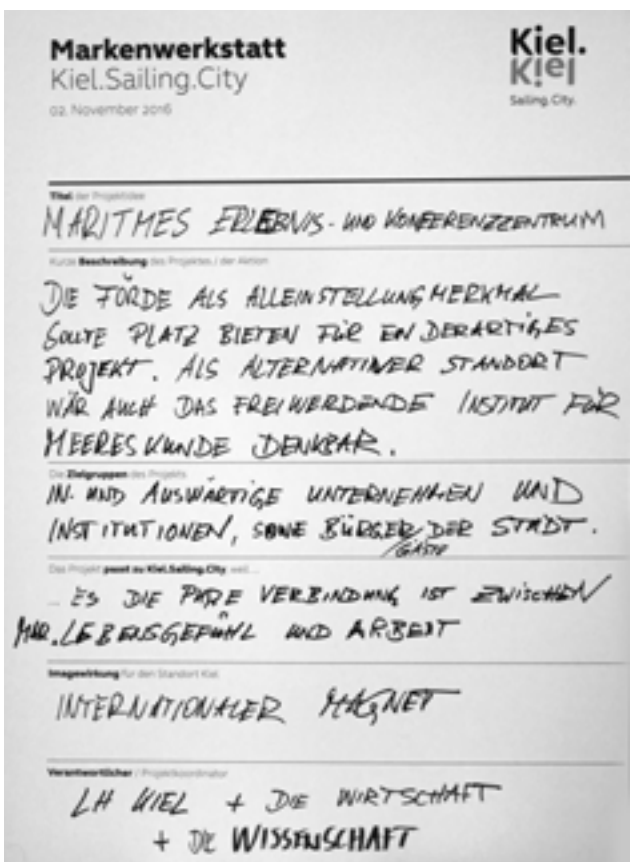 Markenwerkstatt
Kiel.Sailing.City
02. November 2016
Kiel.
Kiel
Sailing.City.
Titel der Projektidee
MARITMES ERLEBNIS- UND KONFERENZZENTRUM
Kurze Beschreibung des Projektes / der Aktion
DIE FÖRDE ALS ALLEINSTELLUNGMERKMAL
SOLLTE PLATZ BIETEN FÜR EIN DERARTIGES
PROJEKT. ALS ALTERNATIVER STANDORT
WÄR AUCH DAS FREIWERDENDE INSTITUT FÜR
MEERESKUNDE DENKBAR.
Die Zielgruppen des Projekts
IN- UND AUSWÄRTIGE UNTERNEHMEN UND
INSTITUTIONEN, SOWIE BÜRGER DER STADT.
/GÄSTE
Das Projekt passt zu Kiel.Sailing.City, weil ...
... ES DIE PURE VERBINDUNG IST ZWISCHEN
MAR. LEBENSGEFÜHL UND ARBEIT
Imagewirkung für den Standort Kiel
INTERNATIONALER MAGNET
Verantwortlicher / Projektkoordinator
LH KIEL + DIE WIRTSCHAFT
+ DIE WISSENSCHAFT